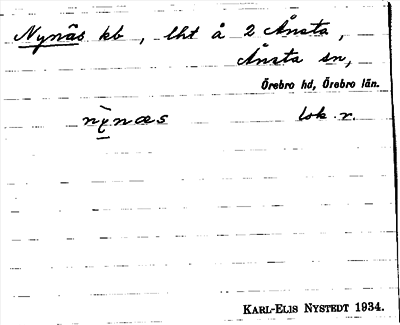 Nynäs kb, lht å 2 Ånsta,
Ånsta sn,
Örebro hd, Örebro län.
nỳnæs lok. r.
KARL-ELIS NYSTEDT 1934.